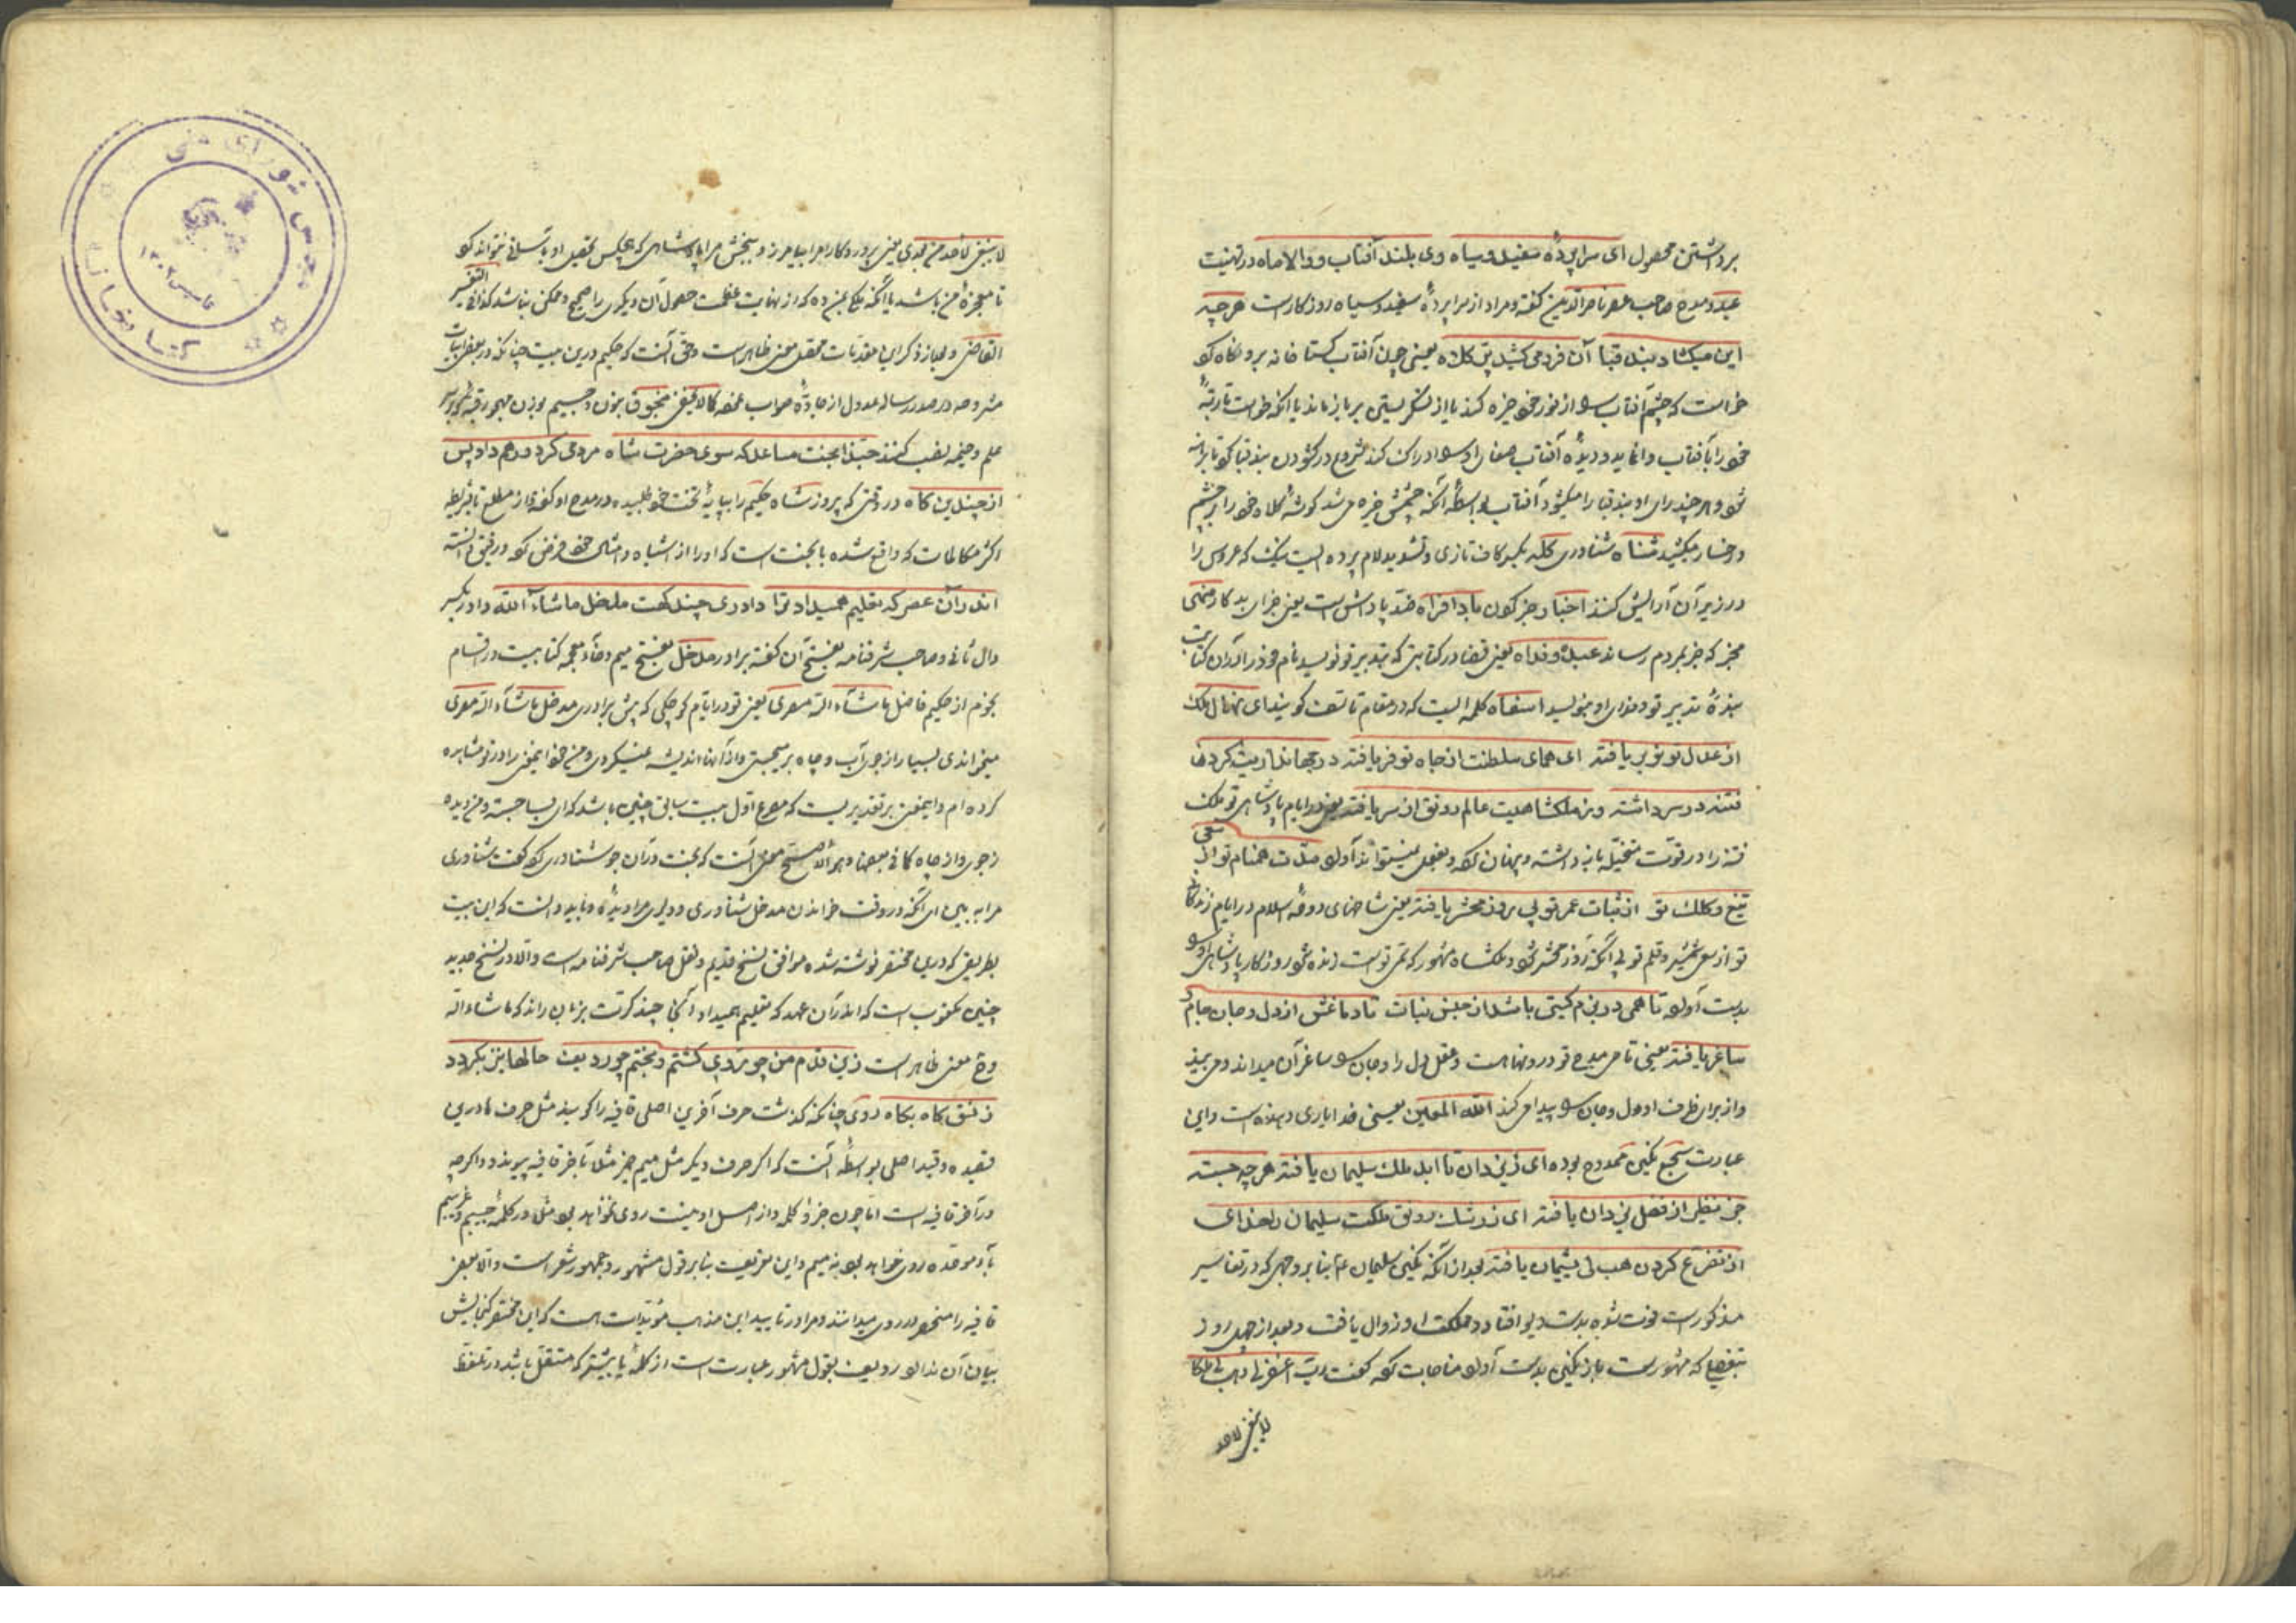 برداشتن محصول ای سراپردهٔ سفید و سیاه وی بلند آفتاب و والا ماه در تهنیت
عید و مدح صاحب ناصرالدین گفته و مراد از سراپردهٔ سفید و سیاه روزگارست هرچه
این میکشاد بند قبا آن فرو می‌کشید کلاه یعنی چون آفتاب گستاخانه برو نگاه کرد
خواست که چشم آفتاب را از نور خود خیره کند یا از نگریستن بر باز ماند یا آنکه خواست تا رتبهٔ
خود را بآفتاب وانماید و دیدهٔ آفتاب صفای او را ادراک کند شروع در کشودن بند قبا کرد تا برهنه
شود و هرچند برای او بند قبا را میکشود آفتاب بواسطهٔ آنکه چشمش خیره می‌شد گوشهٔ کلاه خود را بر چشم
و رخسار میکشید شناه شناوری کله بکسر کاف تازی و تشدید لام پرده ایست تنک که عروس را
در زیر آن آرایش کنند باد افراه ضد پاداش است یعنی جزای بد کار منهی
مخبر که خبر بمردم رساند عبده و فداه یعنی قضا در کتابتی که بتدبیر تو نویسد نام خود را در آن کتابت
بندهٔ تدبیر تو و فدای او بنویسد کلمه ایست که در مقام تاسف گویند ای نهال ملک
از عدل تو نوبر یافته ای همای سلطنت از جاه تو فر یافته در جهانداریت گردنها
فتنه در سر داشته وز ملکشاهیت عالم رونق از سر یافته یعنی در ایام پادشاهی تو ملک
فتنه را در قوت متخیله باز داشته و پنهان کرد و بفعل نمیتواند آورد مدت همنام تو از سعی
تیغ و کلک تو از ثبات عمر تو پی روز محشر یافته یعنی شاخهای دوحهٔ اسلام در ایام زندگانی
تو از سعی شمشیر و قلم تو پی آنکه روز محشر شود ملکشاه مشهور که سمی تو است زنده شد روزگار پادشاهی او را
بدست آورد تا همی در بزم گیتی باشد از جنس نبات تا دماغش از دل و جان جام
ساغر یافته یعنی تا می مدح تو در ونهاست و عقل دل را و جان را ساغر آن میداند و می بیند
و از برای ظرف او دل و جان را پیدا می کند الله المعین یعنی خدا یاری دهنده است و این
عبارت سجع نگین ممدوح بوده ای ز یزدان تا ابد ملک سلیمان یافته هرچه جسته
جز نظیر از فضل یزدان یافته ای ز رشک رونق ملکت سلیمان را خدای
از تضرع کردن هب لی پشیمان یافته بعد از آنکه نگین سلیمان ع بنا بر وجهی که در تفاسیر
مذکورست فوت شده بدست دیو افتاد و مملکت او زوال یافت و بعد از چهل روز
بتفصیلی که مشهورست باز نگین بدست آورد مناجات کرد گفت رب اغفر لی وهب لی ملکا
لاینبغی لاحد
لاینبغی لأحد من بعدی یعنی پروردگارا مرا بیامرز و ببخش مرا پادشاهی که هیچکس تحصیل او بآسانی نتواند کرد
تا معجزهٔ من باشد یا آنکه ملکی بمن ده که از نهایت عظمت حصول آن دیگری را صحیح و ممکن نباشد کذا فی التفسیر
القاضی و بعد از ذکر این مقدمات محصل معنی ظاهرست و حق آنست که حکیم درین بیت چنانکه در بعض ابیات
مشروحه در صدر رساله عدول از جادهٔ صواب نموده کما لا یخفی منجوق بنون و جیم بوزن قبه که بر سر
علم و خیمه نصب کنند حبذا بخت مساعد که سوی حضرت شاه مردمی کرد و رهم داد پس
از چندین گاه در وقتی که پیروز شاه حکیم را بپایهٔ تخت خود طلبیده در مدح او گفته و از مطلع تا شریطه
اکثر مکالمات که واقع شده با بختست که او را از اشباه و امثال خود فرض کرد و رفیق دانسته
اندر آن عصر که تعلیم همیداد ترا داوری چند گفت مدخل ماشاء الله دادر بکسر
دال ثانی و صاحب شرفنامه بفتح آن گفته برادر مدخل بفتح میم و خاء معجمه کتابیست در اقسام
نجوم از حکیم فاضل ماشاء الله مصری یعنی تو در ایام کوچکی که پیش برادری مدخل ماشاء الله مصری
میخواندی بسیار از جوی آب و چاه بر میجستی و از آنها اندیشه نمیکردی و من خود اینمعنی را در تو مشاهده
کرده‌ام و اینمعنی بر تقدیریست که مصرع اول بیت سابق چنین باشد که ای بسا جسته و من دیده
ز جوی و از چاه کما فی بعضها و هو الاصح معنی آنست که بخت در آن جو شناوری کرد و گفت شناوری
مرا به بین ای آنکه در وقت خواندن مدخل شناوری و دلیری مرا دیدهٔ و نباید دانست که این بیت
بطریقی که درین مختصر نوشته شده موافق نسخ قدیم و نقل صاحب شرفنامه است و الا در نسخ جدید
چنین مکتوب است که اندر آن عهد که تعلیم همیداد آنکه چند کرت بزبان راند که ماشاء الله
وح معنی ظاهرست زین قدم من چو روی گشتم و بختم چو ردیف حالها نیز بگردد
ز نسق گاه بگاه روی چنانکه گذشت حرف آخرین اصلی قافیه را گویند مثل حرف ها درین
قصیده و قید اصلی بواسطه آنست که اگر حرف دیگر مثل میم خبر مثلا بآخر قافیه پیوندد و اگرچه
در آخر قافیه است اما چون جزو کلمه و از اصل او نیست روی نخواهد بود مثل در کلمهٔ
باء موحده روی خواهد بود نه میم و این تعریف بنا بر قول مشهور و جمهور شعراست و الا بعضی
قافیه را منحصر در روی میدانند و مرا در تایید این مذهب مؤیدات هست که این مختصر گنجایش
بیان آن ندارد ردیف بقول مشهور عبارت است از کلمهٔ یا بیشتر که مستقل باشد در تلفظ
کتابخانه مجلس شورای ملی